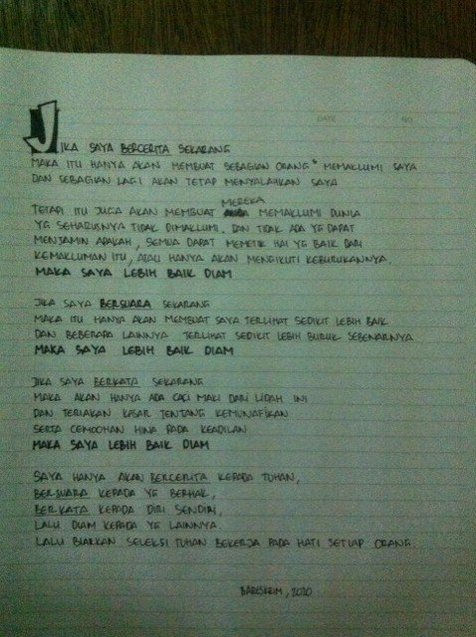 DATE NO.
JIKA SAYA BERCERITA SEKARANG
MAKA ITU HANYA AKAN MEMBUAT SEBAGIAN ORANG" MEMAKLUMI SAYA
DAN SEBAGIAN LAGI AKAN TETAP MENYALAHKAN SAYA
MEREKA
TETAPI ITU JUGA AKAN MEMBUAT MEMAKLUMI DUNIA
YG SEHARUSNYA TIDAK DIMAKLUMI, DAN TIDAK ADA YG DAPAT
MENJAMIN APAKAH, SEMUA DAPAT MEMETIK HAL YG BAIK DARI
KEMAKLUMAN ITU, ATAU HANYA AKAN MENGIKUTI KEBURUKANNYA
MAKA SAYA LEBIH BAIK DIAM
JIKA SAYA BERSUARA SEKARANG
MAKA ITU HANYA AKAN MEMBUAT SAYA TERLIHAT SEDIKIT LEBIH BAIK
DAN BEBERAPA LAINNYA TERLIHAT SEDIKIT LEBIH BURUK SEBENARNYA
MAKA SAYA LEBIH BAIK DIAM
JIKA SAYA BERKATA SEKARANG
MAKA AKAN HANYA ADA CACI MAKI DARI LIDAH INI
DAN TERIAKAN KASAR TENTANG KEMUNAFIKAN
SERTA CEMOOHAN HINA PADA KEADILAN
MAKA SAYA LEBIH BAIK DIAM
SAYA HANYA AKAN BERCERITA KEPADA TUHAN,
BERSUARA KEPADA YG BERHAK,
BERKATA KEPADA DIRI SENDIRI,
LALU DIAM KEPADA YG LAINNYA
LALU BIARKAN SELEKSI TUHAN BEKERJA PADA HATI SETIAP ORANG.
BARESKRIM, 2020